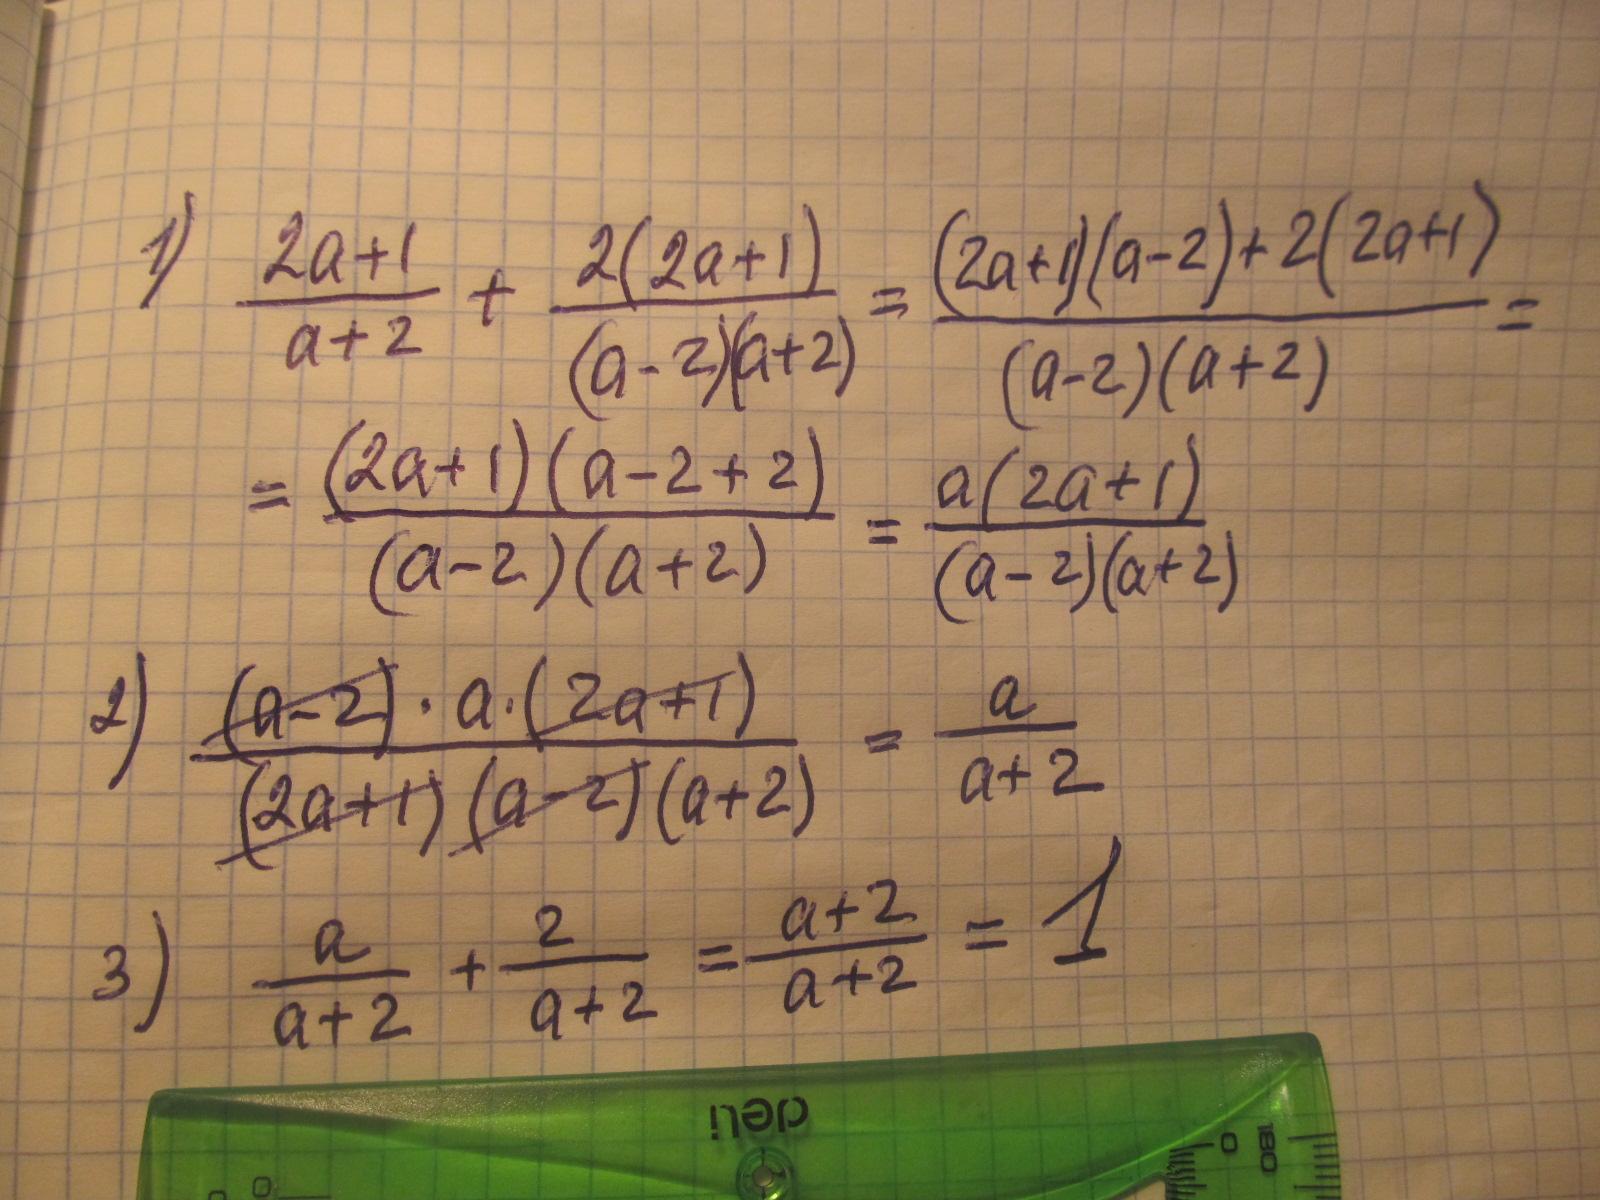 1) (2a+1)/(a+2) + 2(2a+1)/((a-2)(a+2)) = ((2a+1)(a-2)+2(2a+1))/((a-2)(a+2)) =
= ((2a+1)(a-2+2))/((a-2)(a+2)) = a(2a+1)/((a-2)(a+2))
2) ((a-2)·a·(2a+1))/((2a+1)(a-2)(a+2)) = a/(a+2)
3) a/(a+2) + 2/(a+2) = (a+2)/(a+2) = 1
deli
0 180
0 0